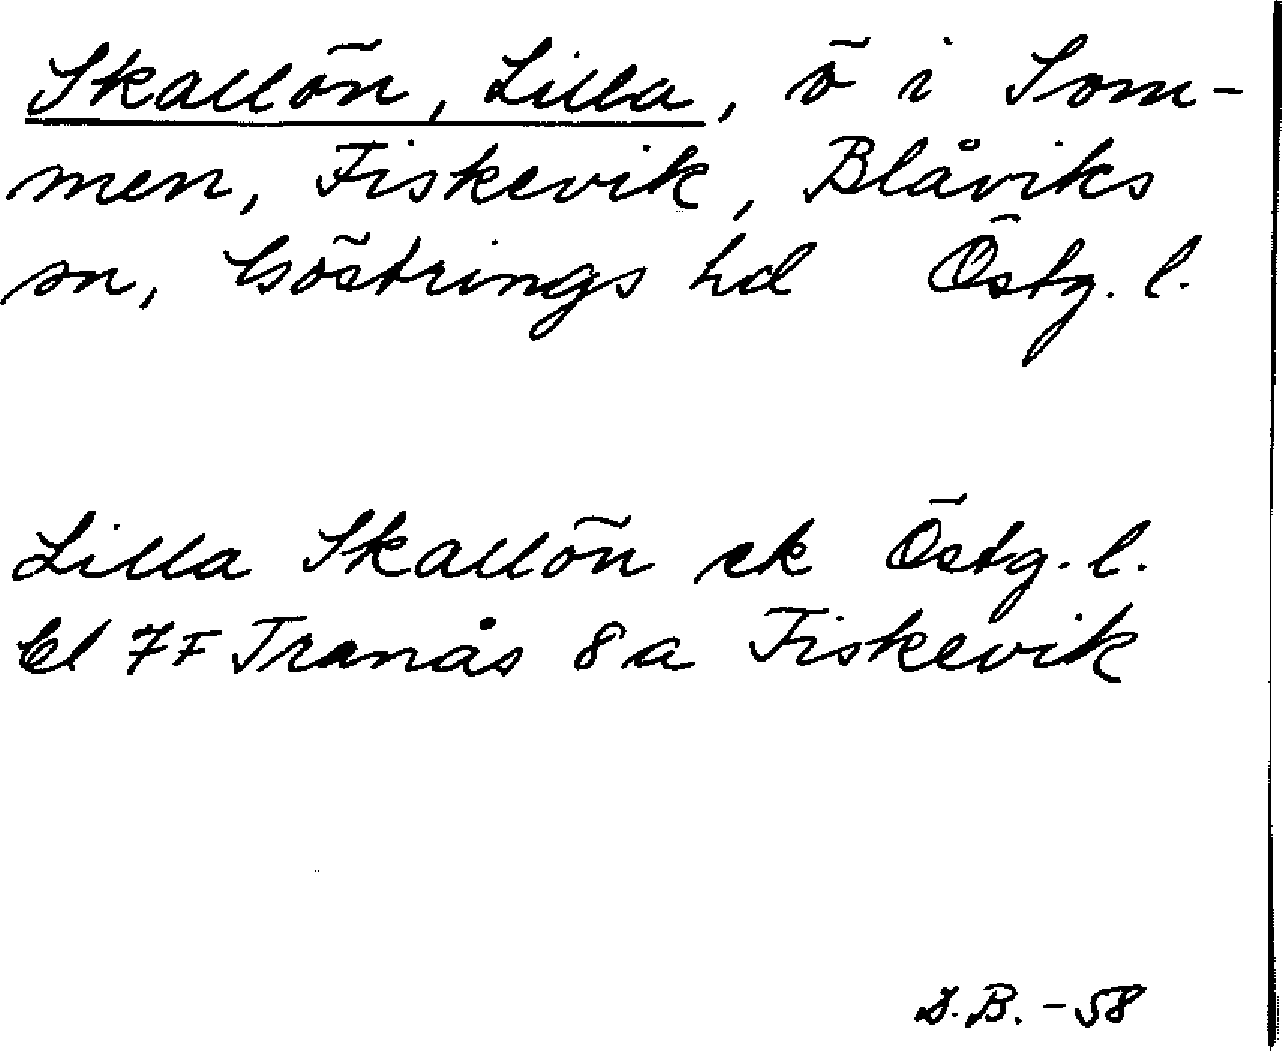 Skallön, Lilla, ö i Som-
men, Fiskevik, Blåviks
sn, Göstrings hd Östg. l.
Lilla Skallön ek Östg. l.
Bl 7F Tranås 8a Fiskevik
D.B. -58